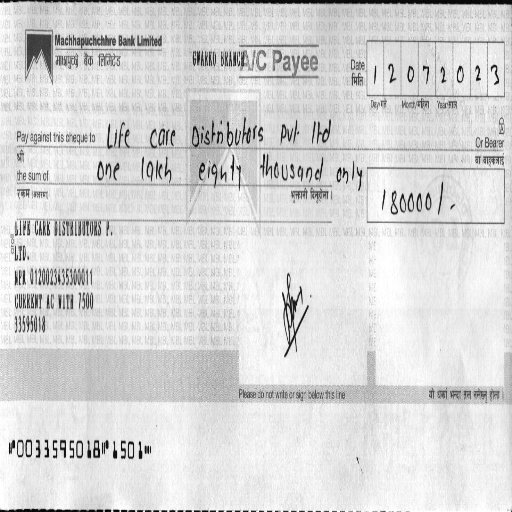 Machhapuchchhre Bank Limited
माछापुच्छ्रे बैंक लिमिटेड
GWARKO BRANCH
A/C Payee
Date
मिति
1 2 0 7 2 0 2 3
Day/गते Month/महिना Year/साल
Pay against this cheque to Life care Distributors Pvt. ltd
Or Bearer
श्री
वा वाहकलाई
the sum of one lakh eighty thousand only
रकम (अक्षरमा)
भुक्तानी दिनुहोला।
180000/-
LIFE CARE DISTRIBUTORS P.
LTD.
NPR 0120023435300011
CURRENT AC WITH 7500
33595018
Please do not write or sign below this line
यो रेखा भन्दा तल नलेख्नु होला।
⑈0033595018⑈1501⑈